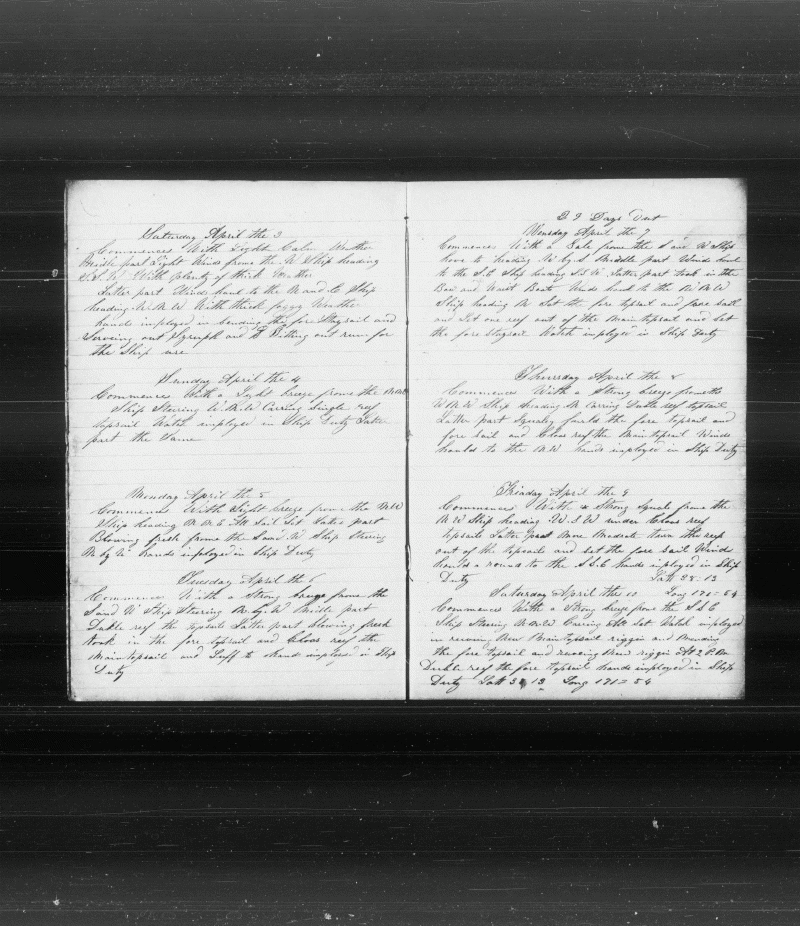 Saturday April the 3
Commences With Light Calm Weather
Middle part Light Winds frome the W Ship heading
S.S.W. With plenty of thick Wether
Latter part Winds hauld to the N and E Ship
heading N.N.W With thick foggy Weather
hands imployed in bending the fore Staysail and
Serveing out and to out for
the Ship use
Sunday April the 4
Commences With a Light breeze frome the NNE
Ship Stearing W.N.W Carring Single reef
topsails Watch imployed in Ship Duty Latter
part the Same
Monday April the 5
Commences With Light breeze frome the NW
Ship heading N.N.E All Sail Set Latter part
Blowing fresh frome the S and W Ship Stearing
N by W hands imployed in Ship Duty
Tuesday April the 6
Commences With a Strong breeze frome the
S and W Ship Stearing N.by.W Middle part
Duble reef the topsails Latter part blowing fresh
took in the fore topsail and Close reef the
Maintopsail and Luff to hands imployed in Ship
Duty
29 Days Out
Wensday April the 7
Commences With a Gale frome the S and W Ship
hove to heading W.by S Middle part Winds hauld
to the S.E Ship heading S.S.W. Latter part took in the
Bow and Waist Boats Winds hauld to the N.N.W
Ship heading W Set the fore topsail and fore sail
and Let one reef out of the Maintopsail and Set
the fore staysail Watch imployed in Ship Duty
Thursday April the 8
Commences With a Strong breeze frome the
W.N.W Ship heading N Carring Duble reef topsails
Latter part Squaley furld the fore topsail and
fore sail and Close reef the Maintopsail Winds
hauld to the N.W hands imployed in Ship Duty
Friday April the 9
Commences With a Strong Squals frome the
N W Ship heading W.S.W under Close reef
topsails Latter part More Moderate turn the reefs
out of the topsails and set the fore sail Winds
hauld a round to the S.S.E hands imployed in Ship
Duty Latt 38-13
Saturday April the 10 Long 171-54
Commences With a Strong breeze frome the S.S.E
Ship Stearing W.N.W Carring All Set Watch imployed
in reeving New Maintopsail riggin and Mending
the fore topsail and reeveing riggin At 2 P.M
Duble reef the fore topsail hands imployed in Ship
Duty Latt 38 13 Long 171=54